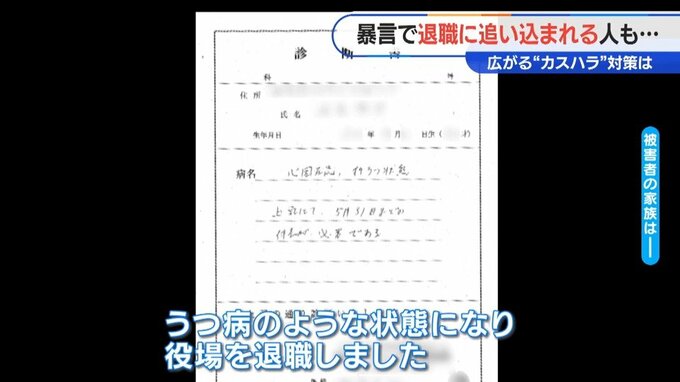 暴言で退職に追い込まれる人も…
広がる“カスハラ”対策は
被害者の家族は――
診断書
科
住所
氏名
生年月日 年 月 日生( 才)
病名 心因反応、抑うつ状態
上記にて、5月31日まで
休養が必要である
うつ病のような状態になり
役場を退職しました